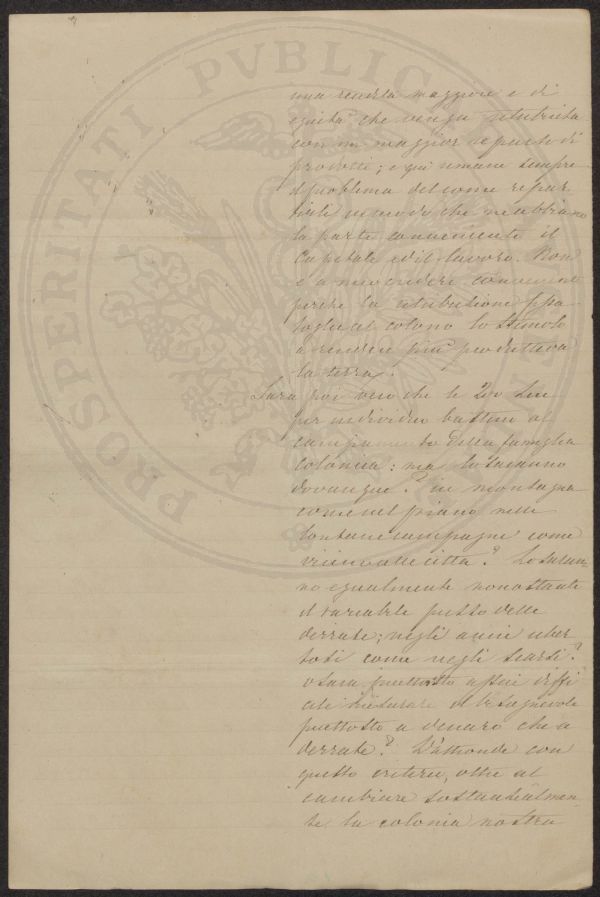 una rendita maggiore e di
equità che venga retribuita
con un maggior reparto di
prodotti; e quì rimane sempre
il problema del come repar
tirli in modo che ne abbiano
la parte conveniente il
Capitale ed il lavoro. Non
è a mio credere conveniente
perchè la retribuzione fissa
toglie al colono lo stimolo
a rendere più produttiva
la terra.
Sarà poi vero che le 200 Lire
per individuo bastino al
campamento della famiglia
colonica: ma lo saranno
dovunque? in montagna
come nel piano nelle
lontane campagne come
vicino alle città? Lo saran-
no egualmente nonostante
il variabile prezzo delle
derrate; negli anni uber
tosi come negli scarsi?
o sarà piuttosto assai diffi
cile misurare il bisognevole
piuttosto a denaro che a
derrate? D'altronde con
questo criterio, oltre al
cambiare sostanzialmen-
te la colonia nostra
PROSPERITATI PVBLICAE